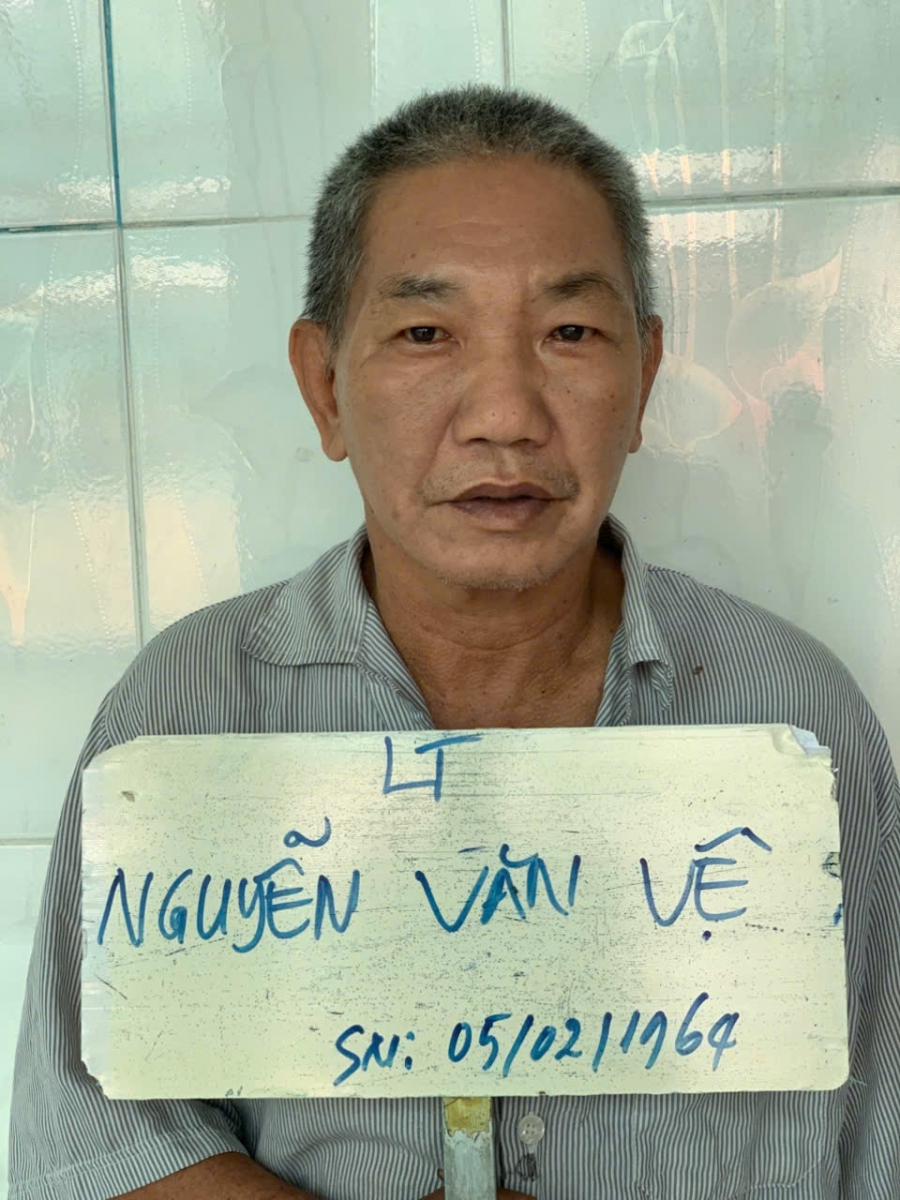 LT
NGUYỄN VĂN VỆ
SN: 05/02/1964